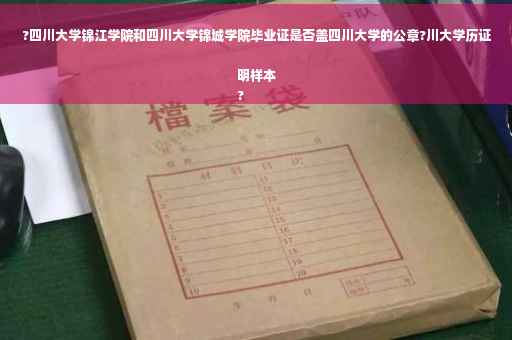 ?四川大学锦江学院和四川大学锦城学院毕业证是否盖四川大学的公章?川大学历证
明样本
?
檔案袋
材料目次
1
2
3
4
5
6
7
8
9
10
11
12
13
14
15
16
17
18
19
20
年 月 日